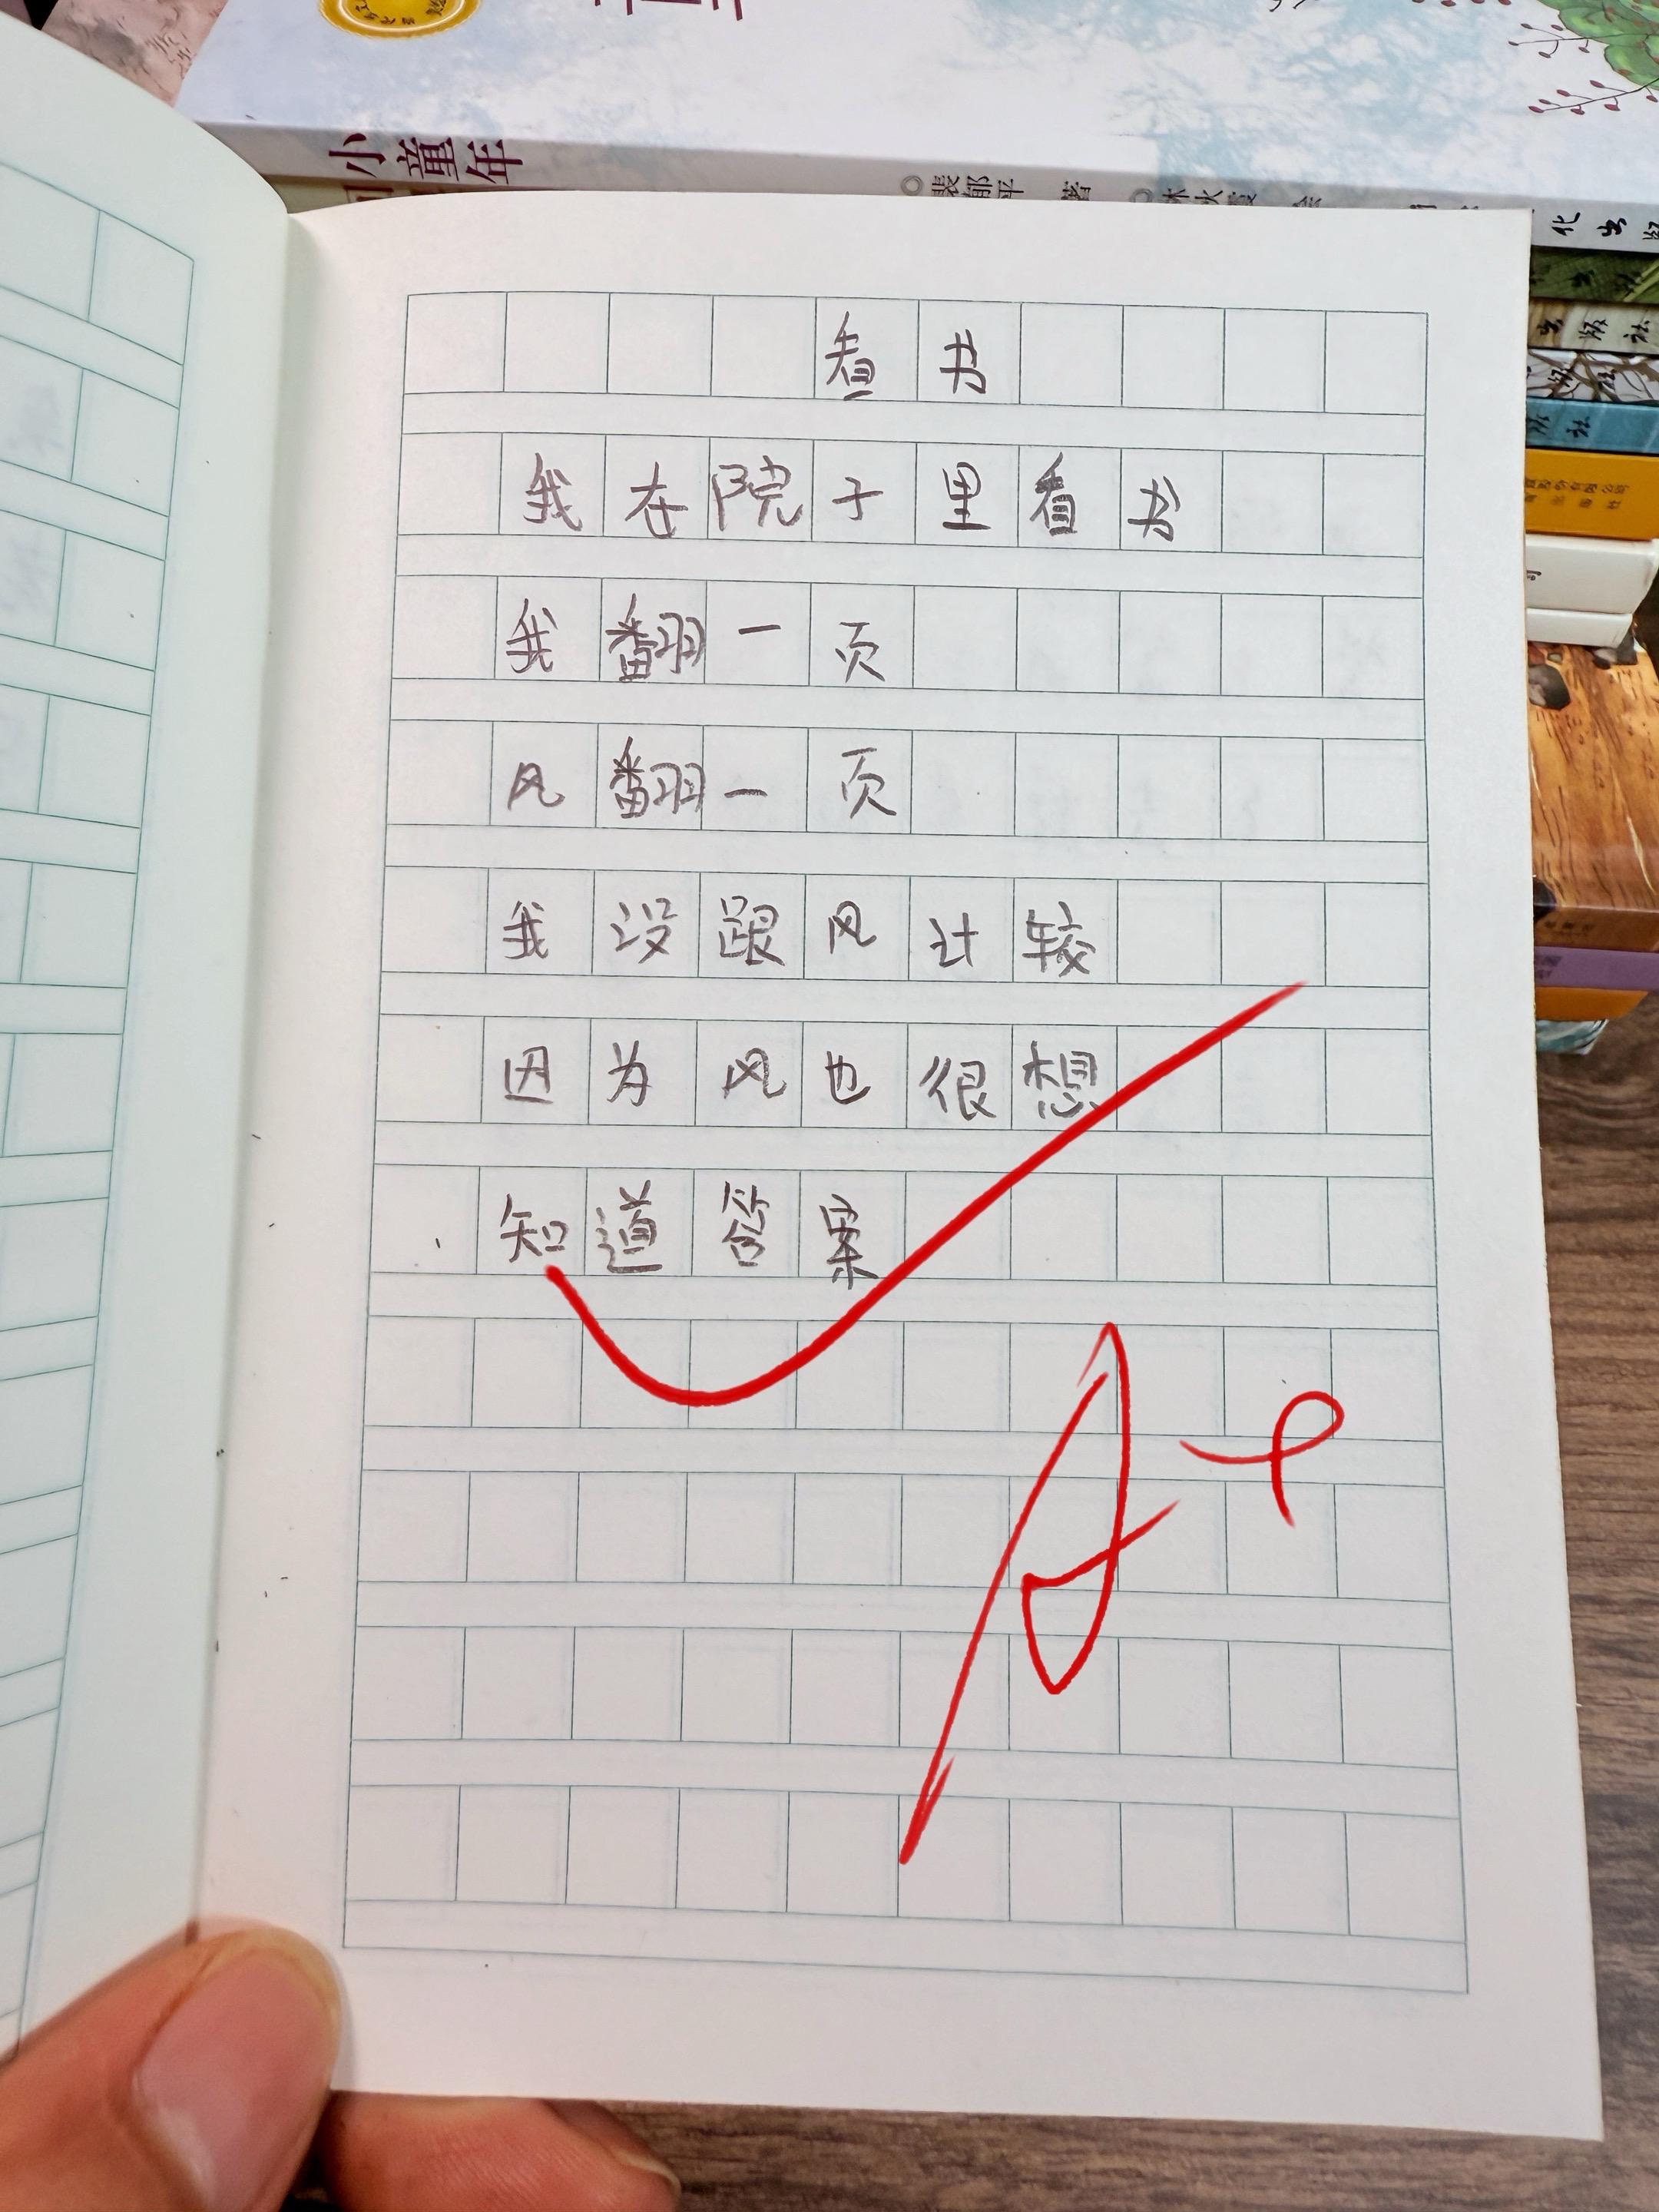 小童年
裴郁平 著
看书
我在院子里看书
我翻一页
风翻一页
我没跟风计较
因为风也很想
知道答案
A+